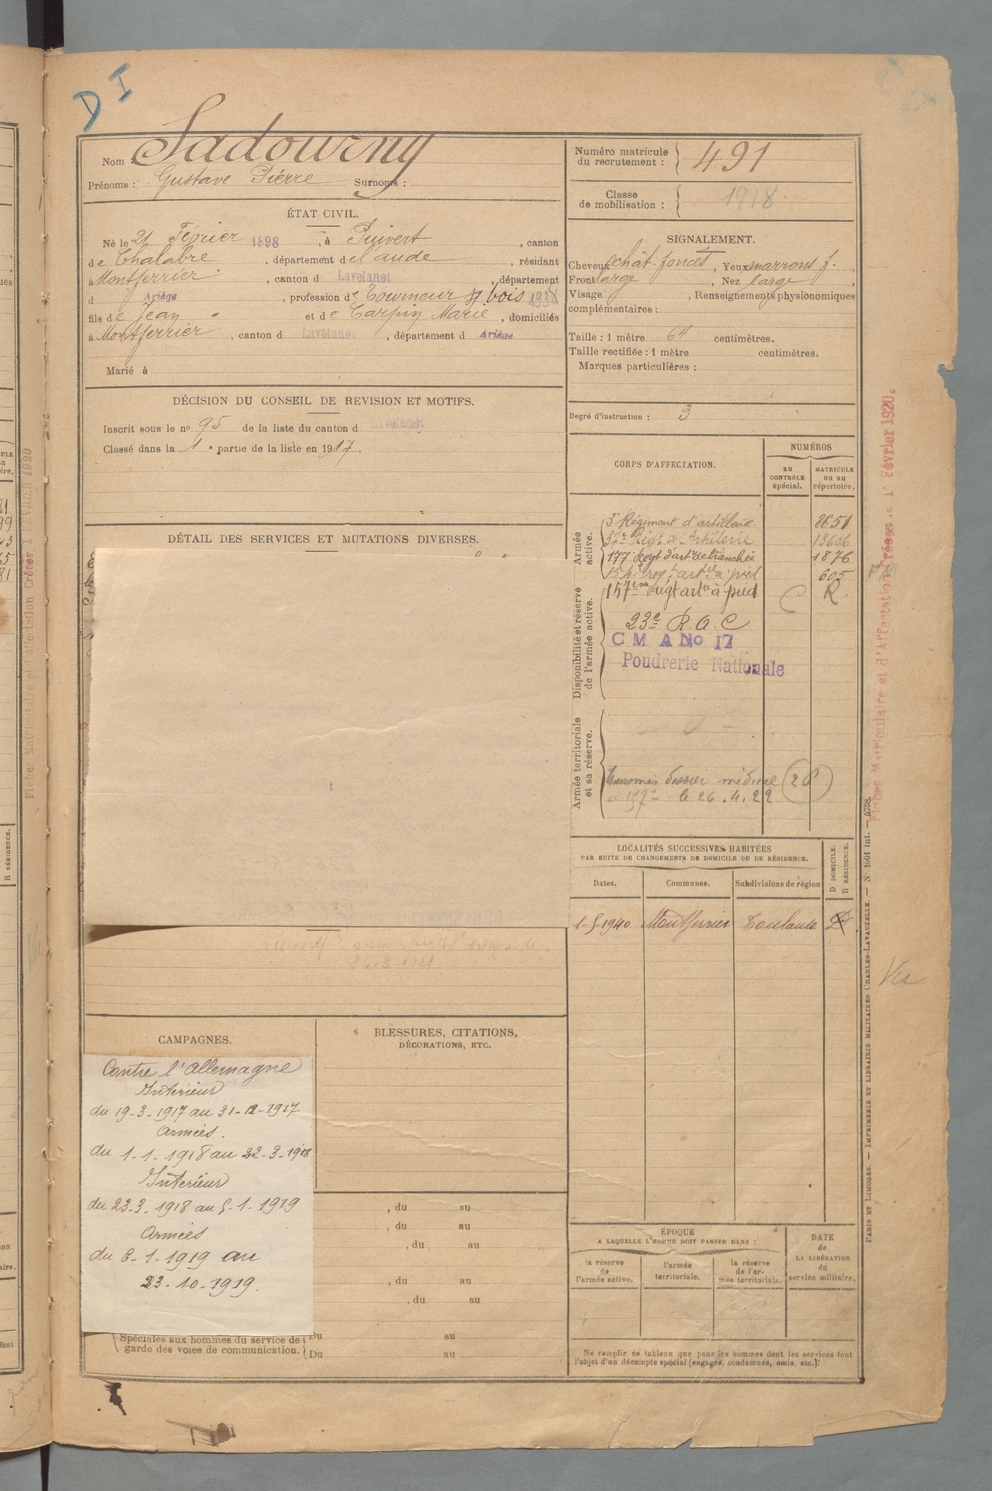 D I
Nom : Sadourny
Prénoms : Gustave Pierre Surnoms :
Numéro matricule du recrutement : 491
Classe de mobilisation : 1918
ÉTAT CIVIL.
Né le 21 Février 1898, à Puivert, canton
de Chalabre, département de l'aude, résidant
à Montferrier, canton d Lavelanet, département
d Ariège, profession de Tourneur s/ bois 1938
fils de Jean et de Tarpin Marie, domiciliés
à Montferrier, canton d Lavelanet, département d Ariège
Marié à
SIGNALEMENT.
Cheveux chât. foncés, Yeux marrons f.,
Front large, Nez large
Visage , Renseignements physionomiques
complémentaires :
Taille : 1 mètre 64 centimètres.
Taille rectifiée : 1 mètre centimètres.
Marques particulières :
Degré d'instruction : 3
DÉCISION DU CONSEIL DE REVISION ET MOTIFS.
Inscrit sous le no 95 de la liste du canton d Lavelanet
Classé dans la 1e partie de la liste en 1917.
DÉTAIL DES SERVICES ET MUTATIONS DIVERSES.
CORPS D'AFFECTATION.
NUMÉROS
au CONTRÔLE spécial.
MATRICULE ou au répertoire.
Armée active.
3e Régiment d'artillerie. 8651
Régt d'Artillerie
177e Regt d'art de tranchée 1876
154e reg. art à pied 605
Disponibilité et réserve de l'armée active.
157eme régt art à pied C R.
23e R.A.C
C M A No 17
Poudrerie Nationale
Armée territoriale et sa réserve.
dossier médical
le 26.4.22
LOCALITÉS SUCCESSIVES HABITÉES
PAR SUITE DE CHANGEMENTS DE DOMICILE OU DE RÉSIDENCE.
Dates. Communes. Subdivisions de région
D DOMICILE. R RÉSIDENCE.
1-5-1940 Montferrier Toulouse D
Vu
CAMPAGNES.
Contre l'Allemagne
Intérieur
du 19-3-1917 au 31-12-1917
Armées.
du 1-1-1918 au 22-3-1918
Intérieur
du 23.3.1918 au 5-1-1919
Armées
du 6-1-1919 au
23-10-1919.
BLESSURES, CITATIONS,
DÉCORATIONS, ETC.
, du au
, du au
, du au
, du au
, du au
Spéciales aux hommes du service de garde des voies de communication. Du au
Du au
ÉPOQUE
A LAQUELLE L'HOMME DOIT PASSER DANS :
la réserve de l'armée active.
l'armée territoriale.
la réserve de l'armée territoriale.
DATE de LA LIBÉRATION du service militaire.
Ne remplir ce tableau que pour les hommes dont les services font
l'objet d'un décompte spécial (engagés, condamnés, omis, etc.).
PARIS ET LIMOGES. — IMPRIMERIE ET LIBRAIRIE MILITAIRES CHARLES-LAVAUZELLE.
Fiches Matriculaire et d'Affectation créées le 1 Février 1920.